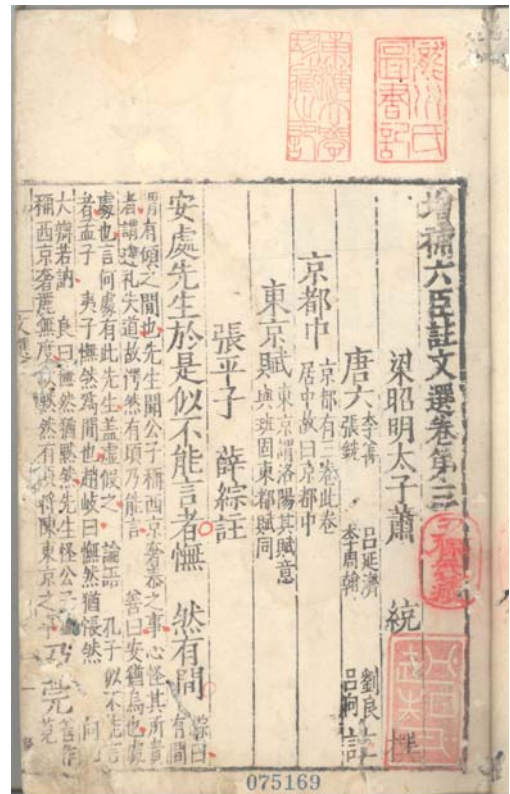 增補六臣註文選卷第三
梁昭明太子蕭 統 撰
唐六 李善 呂延濟 劉良 張銑 李周翰 呂向 註
京都中 京都有三卷此卷居中故曰京都中
東京賦 東京謂洛陽其賦意與班固東都賦同
張平子 薛綜註
安處先生於是似不能言者憮 然有間 綜曰有間
謂有頃之間也先生聞公子稱西京奢泰之事心怪其所責
者謂違礼失道故愕然有頃乃能言 善曰安猶烏也處
處也言何處有此先生盖虛假之 論語 孔子似不能言
者孟子 夷子憮然為間也趙岐曰憮然猶悵然 向
大辯若訥 良曰憮然猶默然先生怪公子
稱西京奢麗無度 默然有頃將陳東京之 乃莞 善作莧
075169